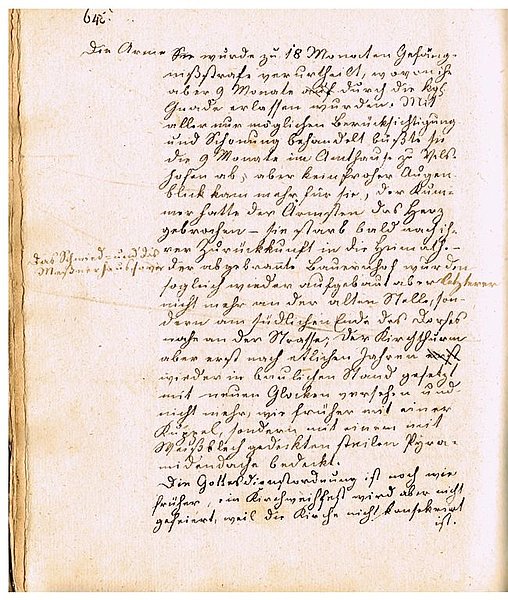 64.
Die Arme Sie wurde zu 18 Monaten Gefäng-
nißstrafe verurtheilt, wovon ihr
aber 9 Monate auf durch die kgl.
Gnade erlassen wurden. Mit
aller nur möglichen Berücksichtigung
und Schonung behandelt büßte sie
die 9 Monate im Amthause zu Vils-
hofen ab, aber kein froher Augen
blick kam mehr für sie, der Kum-
mer hatte der Ärmsten das Herz
gebrochen – sie starb bald nach ih-
rer Zurückkunft in die Heimath. –
das Schmied- und das
Meßnerhaus sowie
der abgebrannte Bauernhof wurden
sogleich wieder aufgebaut aber letzterer
nicht mehr an der alten Stelle, son-
dern am südlichen Ende des Dorfes
nahe an der Strasse; der Kirchthurm
aber erst nach etlichen Jahren erst
wieder in baulichen Stand gesetzt
mit neuen Glocken versehen und
nicht mehr, wie früher mit einer
Kuppel, sondern mit einem mit
Weißblech gedeckten steilen Pyra-
midendache bedeckt.
Die Gottesdienstordnung ist noch wie
früher, ein Kirchweihfest wird aber nicht
gefeiert, weil die Kirche nicht konsekrirt
ist.